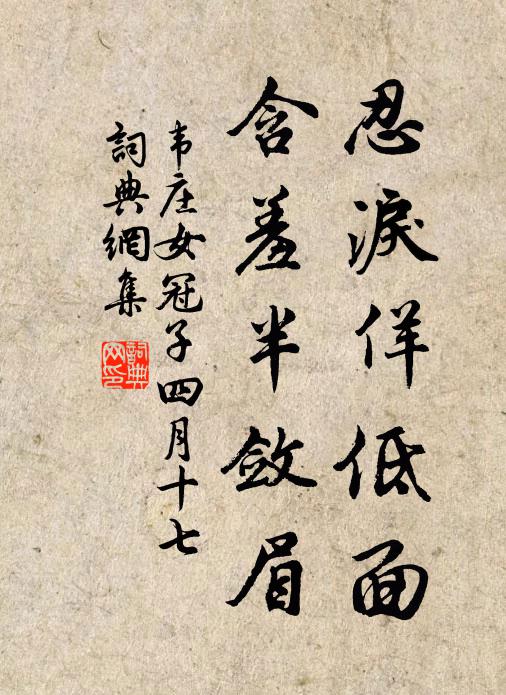 忍淚佯低面
含羞半斂眉
韦庄女冠子四月十七
詞典網集
詞典网印